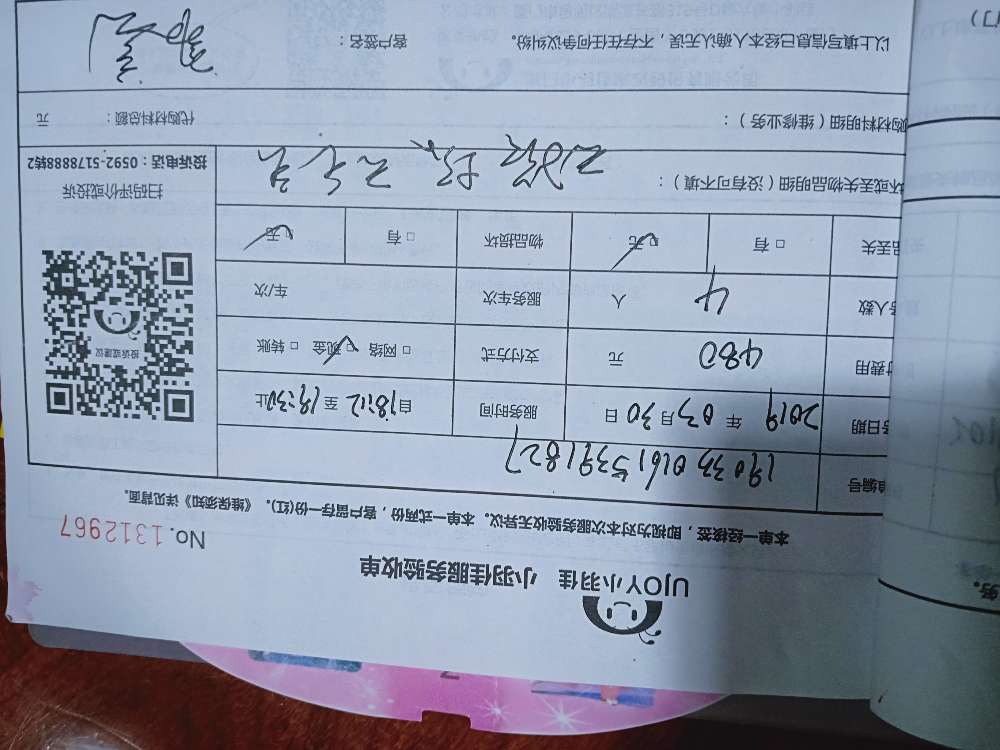 UJOY小羽佳 小羽佳服务验收单
No. 1312967
本单一经核签，即视为对本次服务验收无异议。本单一式两份，客户留存一份(红)。《维保须知》详见背面。
单编号 1903301615391827
务日期 2019 年 03 月 30 日 服务时间 自18:12 至 19:30止
付费用 480 元 支付方式 □ 网络 □ 现金 □ 转账
务人数 4 人 服务车次 车/次
品丢失 □ 有 □ 无 物品损坏 □ 有 □ 无
坏或丢失物品明细（没有可不填）：
购材料明细（维修业务）： 代购材料总额： 元
以上填写信息已经本人确认无误，不存在任何争议纠纷。 客户签名：
投诉或建议
扫码评价或投诉
投诉电话：0592-5178888转2